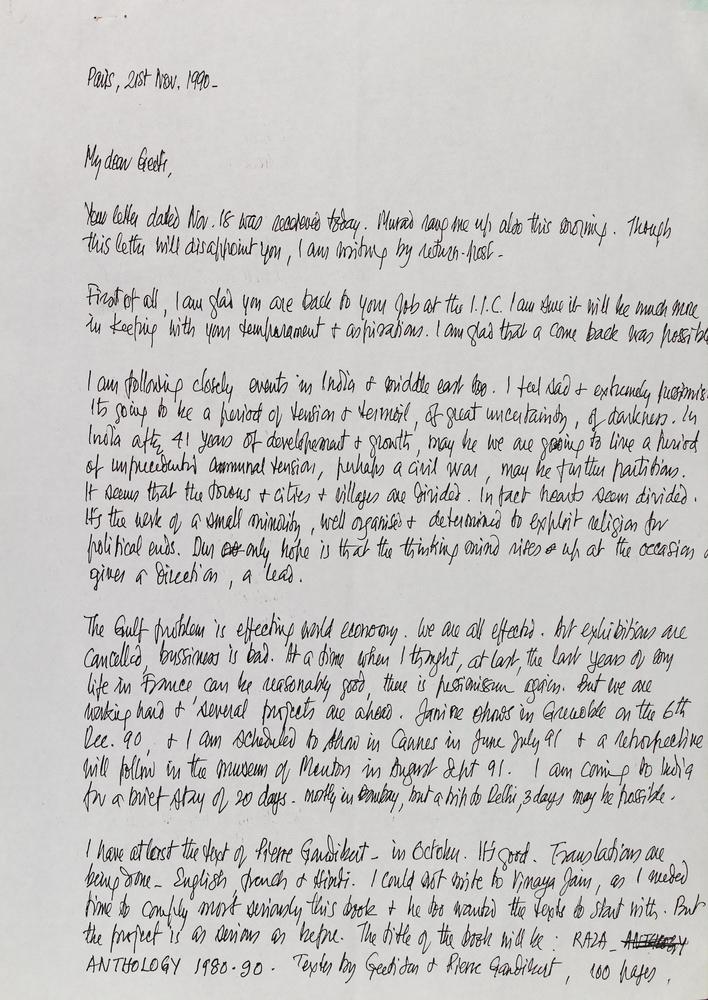 Paris, 21st Nov. 1990-
My dear Geeti,
Your letter dated Nov. 18 was received today. Murad rang me up also this morning. Though
this letter will disappoint you, I am writing by return-post-
First of all, I am glad you are back to your Job at the I.I.C. I am sure it will be much more
in keeping with your temparament & aspirations. I am glad that a come back was possible
I am following closely events in India & middle east too. I feel sad & extremely
Its going to be a period of tension & termoil, of great uncertainity, of darkness. In
India after 41 years of developement & growth, may be we are going to live a period
of unprecedented communal tension, perhaps a civil war, may be further partitions.
It seems that the towns & cities & villages are divided. In fact hearts seem divided.
It's the work of a small minority, well organised & determined to exploit religion for
political ends. Our only hope is that the thinking mind rises up at the occasion
gives a direction, a lead.
The Gulf problem is effecting world economy. We are all effected. Art exhibitions are
cancelled, bussiness is bad. At a time when I thought, at last, the last years of my
life in France can be reasonably good, there is pessimissm again. But we are
working hard & several projects are ahead. Janine shows in Grenoble on the 6th
Dec. 90, & I am scheduled to show in Cannes in June July 91 & a retrospective
will follow in the museum of Menton in August Sept 91. I am coming to India
for a brief stay of 20 days- mostly in Bombay, but a trip to Delhi, 3 days may be possible.
I have at last the text of Pierre Gaudibert - in October. It's good. Translations are
being done - English, french & Hindi. I could not write to Vinaya Jain, as I needed
time to comply most seriously this book & he too wanted the texts to start with. But
the project is as serious as before. The title of the book will be: RAZA - ANTHOLOGY
ANTHOLOGY 1980-90- Textes by Geeti Sen & Pierre Gaudibert, 100 pages,